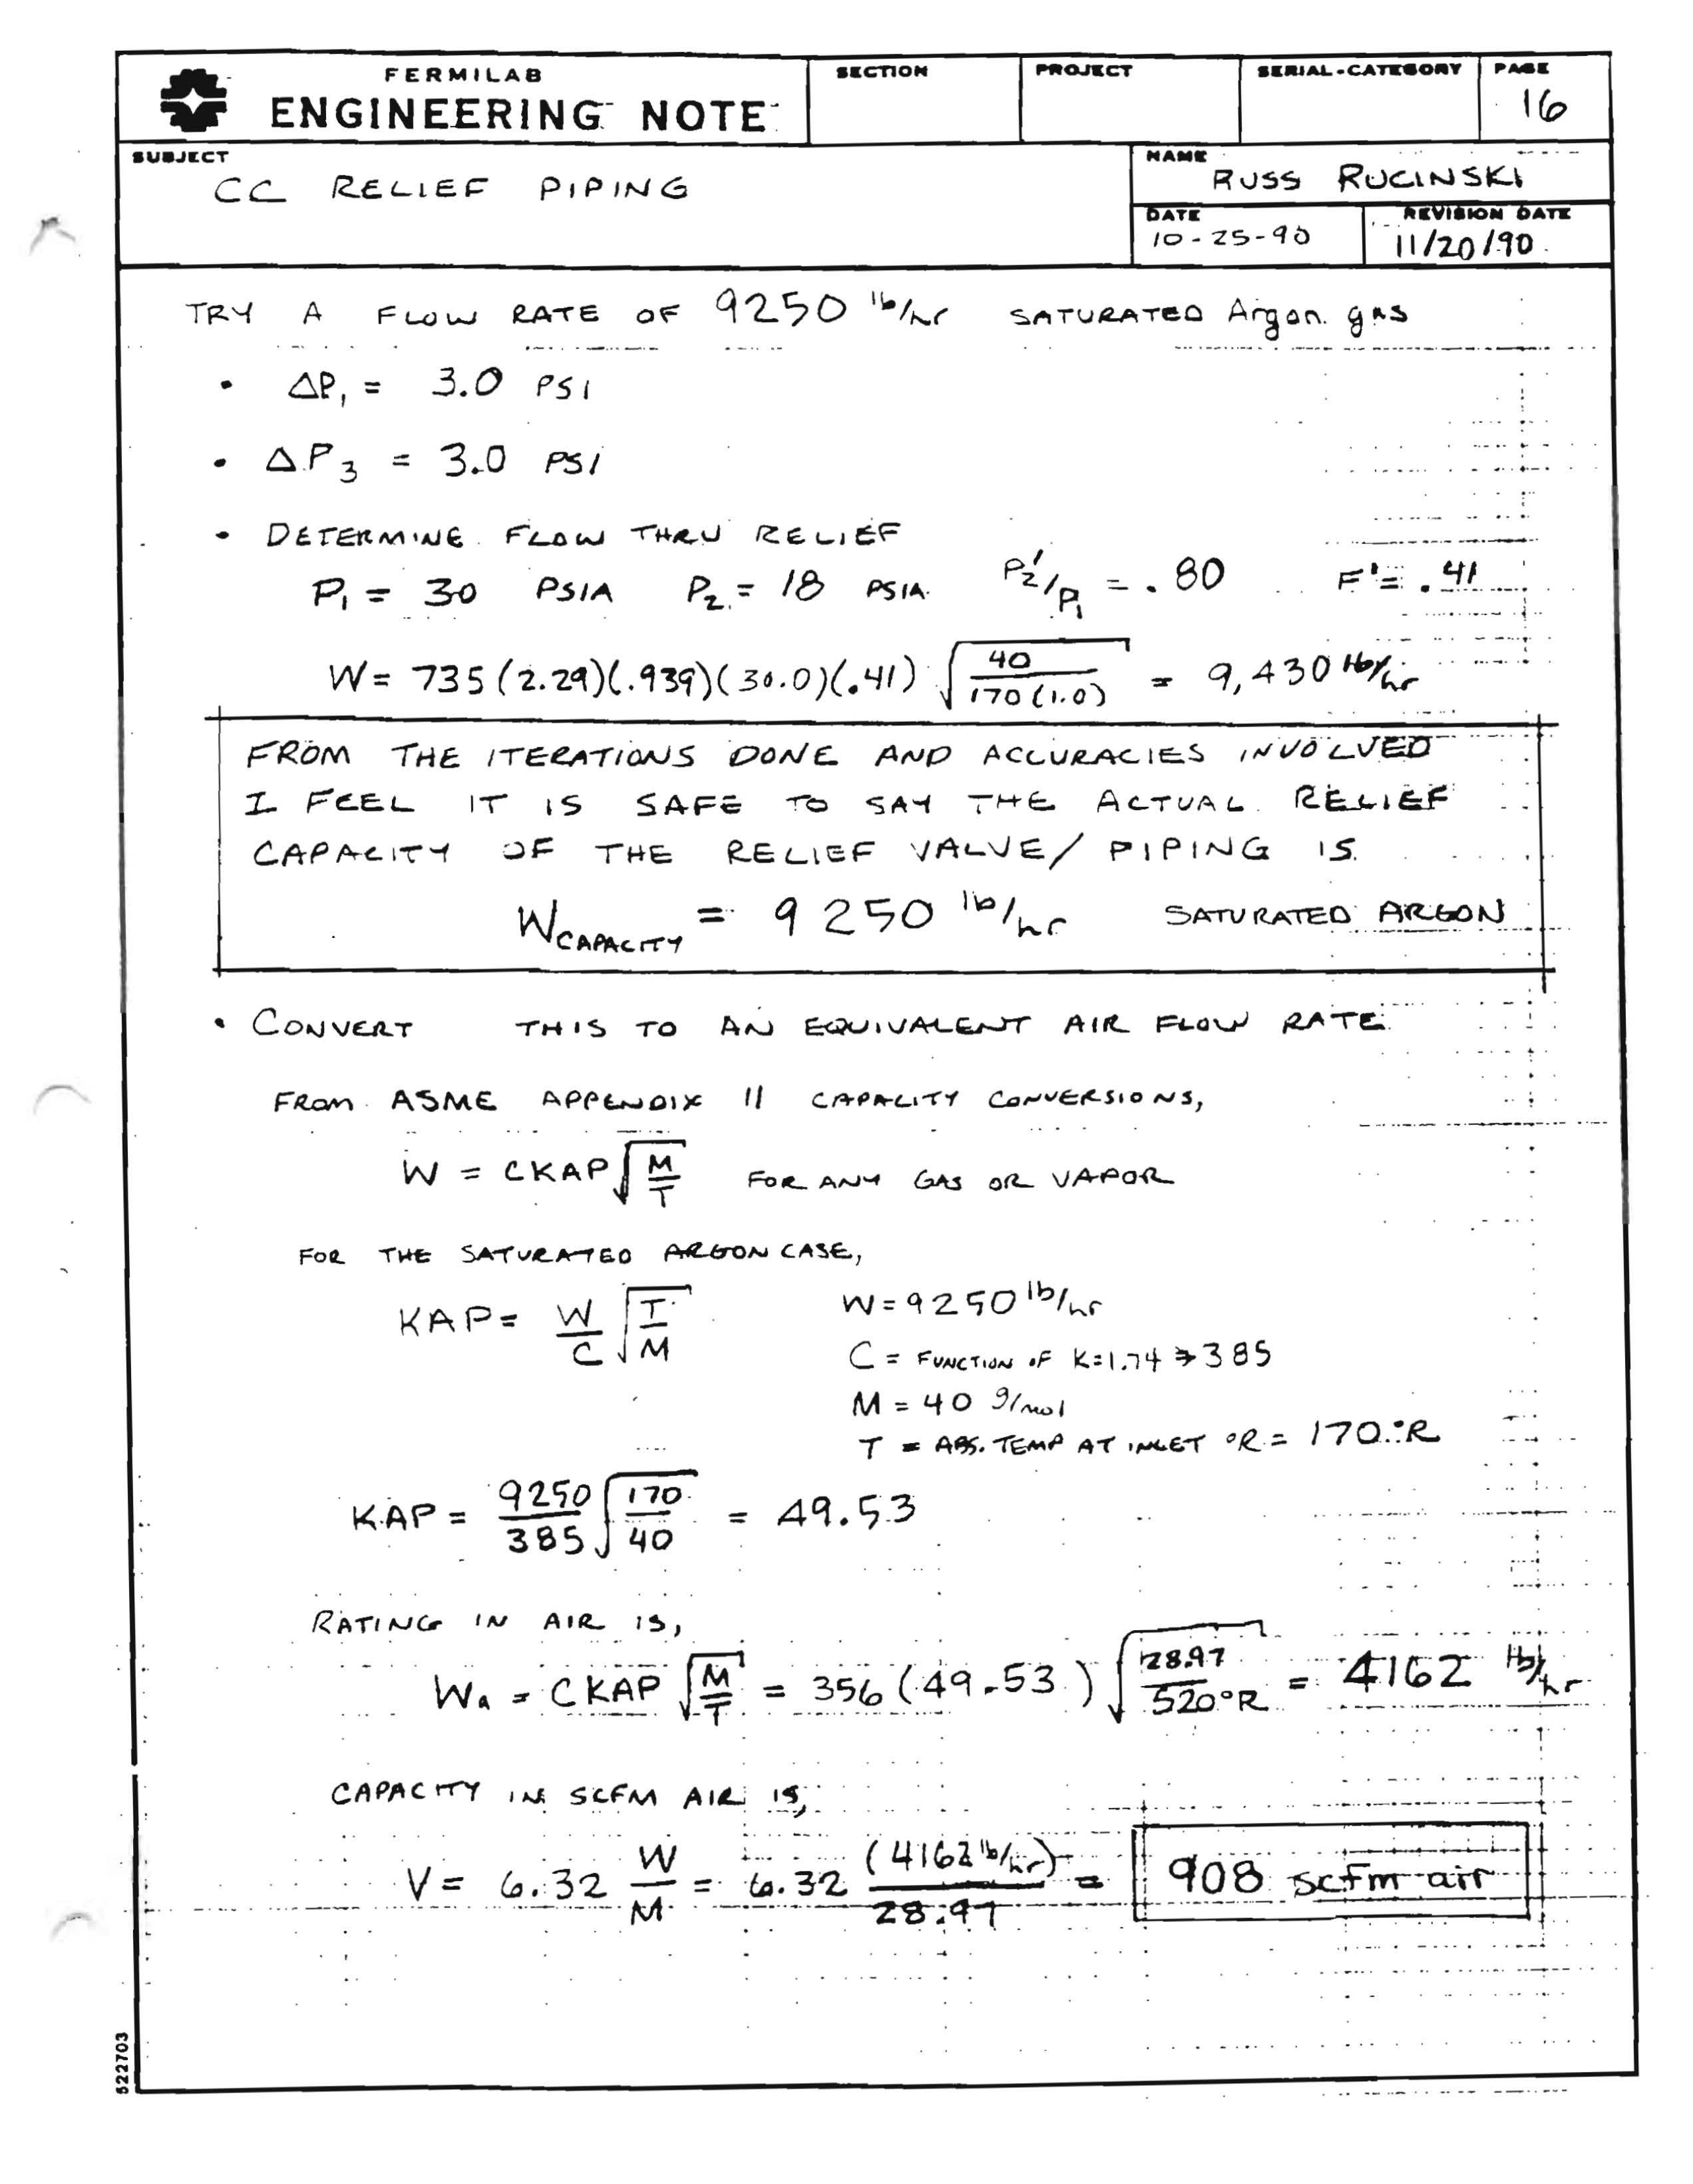 FERMILAB
ENGINEERING NOTE
SECTION
PROJECT
SERIAL-CATEGORY
PAGE
16
SUBJECT
CC RELIEF PIPING
NAME
RUSS RUCINSKI
DATE
10-25-90
REVISION DATE
11/20/90
TRY A FLOW RATE OF 9250 lb/hr SATURATED Argon gas
• ΔP₁ = 3.0 PSI
• ΔP₃ = 3.0 PSI
• DETERMINE FLOW THRU RELIEF
P₁ = 30 PSIA P₂ = 18 PSIA P₂'/P₁ = .80 F' = .41
W = 735 (2.29)(.939)(30.0)(.41) √(40/170(1.0)) = 9,430 lb/hr
FROM THE ITERATIONS DONE AND ACCURACIES INVOLVED
I FEEL IT IS SAFE TO SAY THE ACTUAL RELIEF
CAPACITY OF THE RELIEF VALVE/PIPING IS
W CAPACITY = 9250 lb/hr SATURATED ARGON
• CONVERT THIS TO AN EQUIVALENT AIR FLOW RATE
FROM ASME APPENDIX 11 CAPACITY CONVERSIONS,
W = CKAP √(M/T) FOR ANY GAS OR VAPOR
FOR THE SATURATED ARGON CASE,
KAP = W/C √(T/M)
W = 9250 lb/hr
C = FUNCTION OF K=1.74 → 385
M = 40 g/mol
T = ABS. TEMP AT INLET °R = 170 °R
KAP = 9250/385 √(170/40) = 49.53
RATING IN AIR IS,
Wa = CKAP √(M/T) = 356 (49.53) √(28.97/520°R) = 4162 lb/hr
CAPACITY IN SCFM AIR IS,
V = 6.32 W/M = 6.32 (4162 lb/hr)/28.97 = 908 scfm air
522703